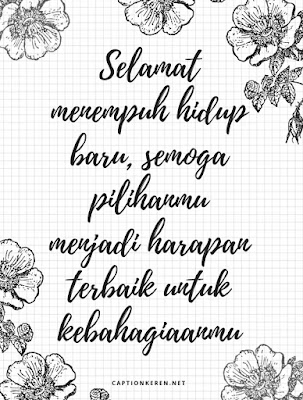 Selamat
menempuh hidup
baru, semoga
pilihanmu
menjadi harapan
terbaik untuk
kebahagiaanmu
CAPTIONKEREN.NET